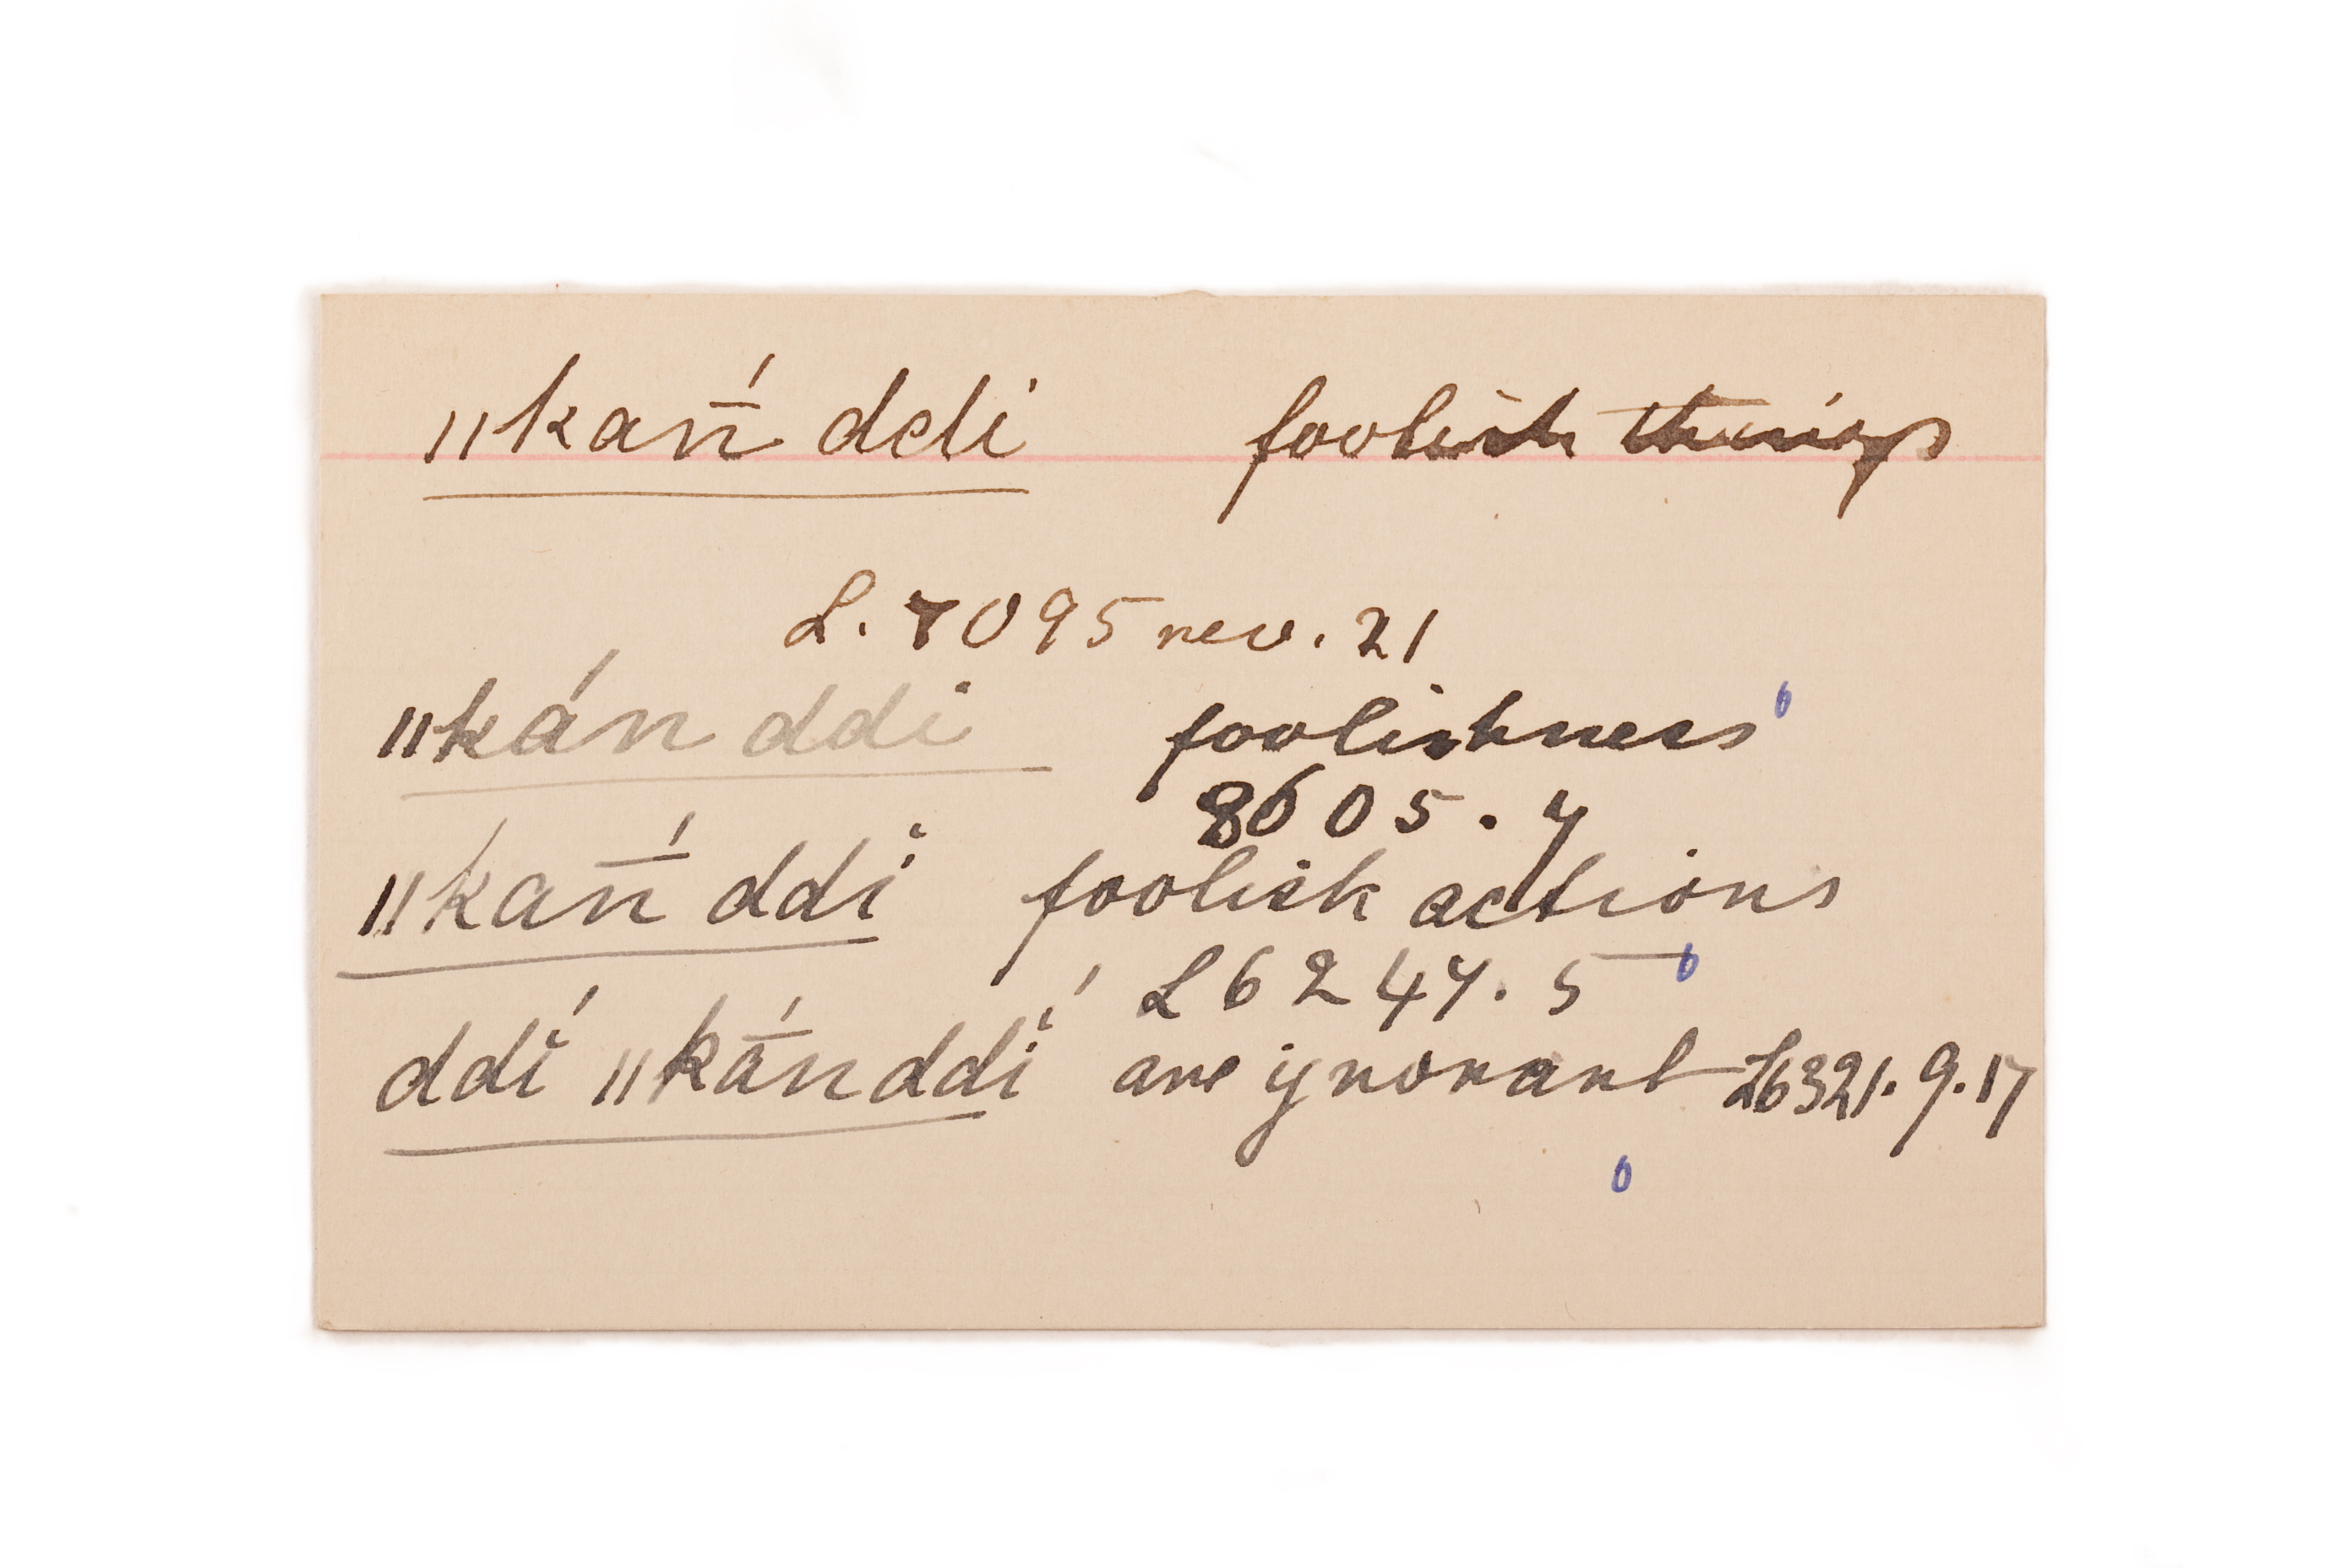 ǁkan̄́ ddi foolish things
L. 7095 rev. 21
ǁkán ddi foolishness
8605. 7
ǁkan̄́ ddi foolish actions
L 6247. 5
ddí ǁkā́nddí are ignorant L6321. 9. 17